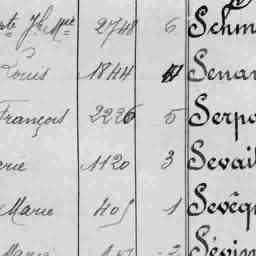 pte Jh Mie 2748 6 Schm
Louis 1844 4 Senar
François 2226 5 Serpo
rie 1120 3 Sevail
Marie 405 1 Sevêq
Marie 2 Sévin